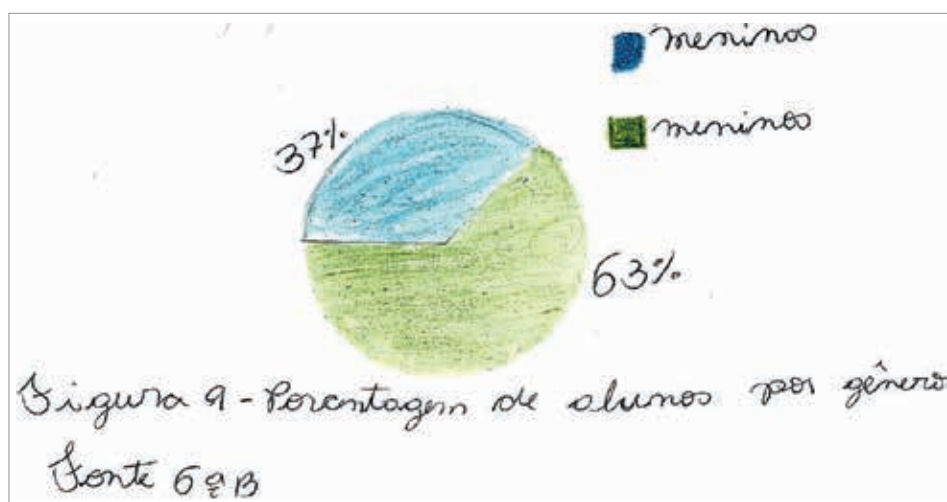 meninos
meninos
37%
63%
Figura 9 - Porcentagem de alunos por gênero
Fonte 6ª B